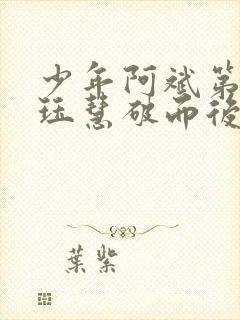 少年阿斌第
珏慧破而後
葉紫